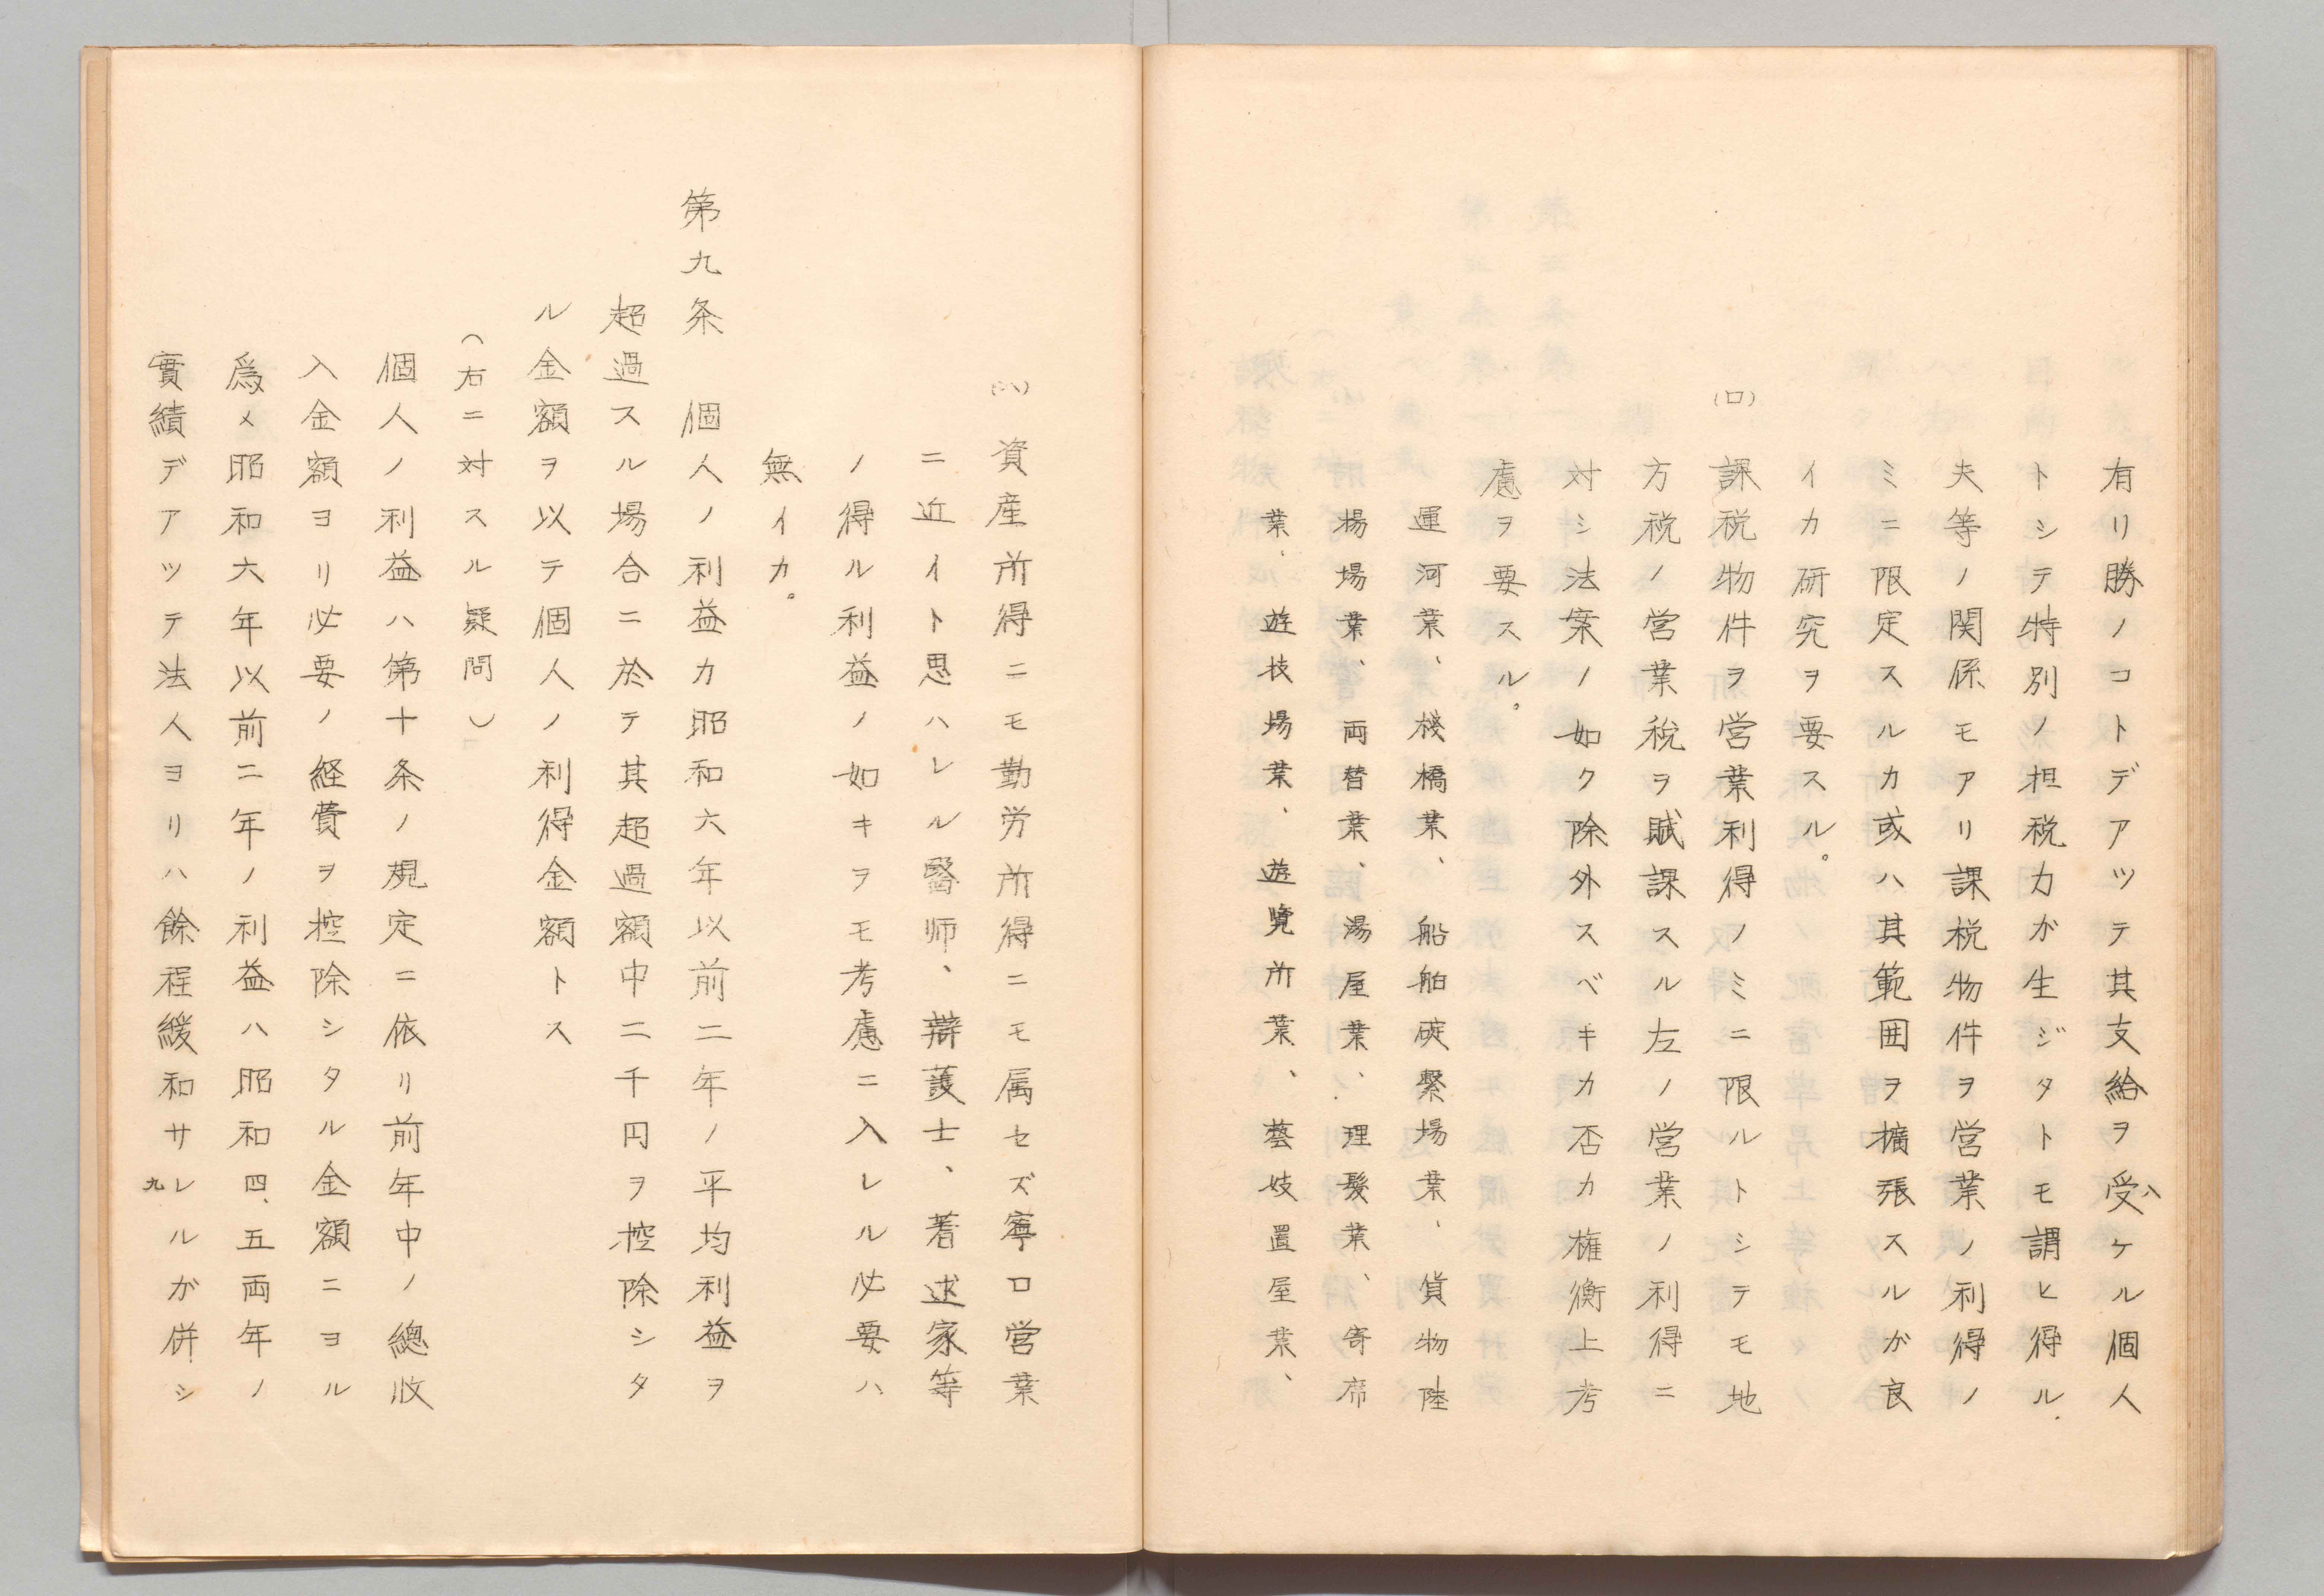 有リ勝ノコトデアツテ其支給ヲ受ケル個人
トシテ特別ノ担税力が生ジタトモ謂ヒ得ル.
夫等ノ関係モアリ課税物件ヲ営業ノ利得ノ
ミニ限定スルカ或ハ其範囲ヲ擴張スルが良
イカ研究ヲ要スル。
(ロ)課税物件ヲ営業利得ノミニ限ルトシテモ地
方税ノ営業税ヲ賦課スル左ノ営業ノ利得ニ
対シ法案ノ如ク除外スベキカ否カ権衡上考
慮ヲ要スル。
運河業、棧橋業、船舶碇繋場業、貨物陸
揚場業、両替業、湯屋業、理髪業、寄席
業、遊技場業、遊覽所業、藝妓置屋業、
八
(ハ)資産所得ニモ勤労所得ニモ属セズ寧ロ営業
ニ近イト思ハレル醫师、辯護士、著述家等
ノ得ル利益ノ如キヲモ考慮ニ入レル必要ハ
無イカ。
第九条 個人ノ利益カ昭和六年以前二年ノ平均利益ヲ
超過スル場合ニ於テ其超過額中二千円ヲ控除シタ
ル金額ヲ以テ個人ノ利得金額トス
(右ニ対スル疑問)
個人ノ利益ハ第十条ノ規定ニ依リ前年中ノ總收
入金額ヨリ必要ノ経費ヲ控除シタル金額ニヨル
爲メ昭和六年以前二年ノ利益ハ昭和四、五両年ノ
實績デアツテ法人ヨリハ餘程緩和サレルが併シ
九